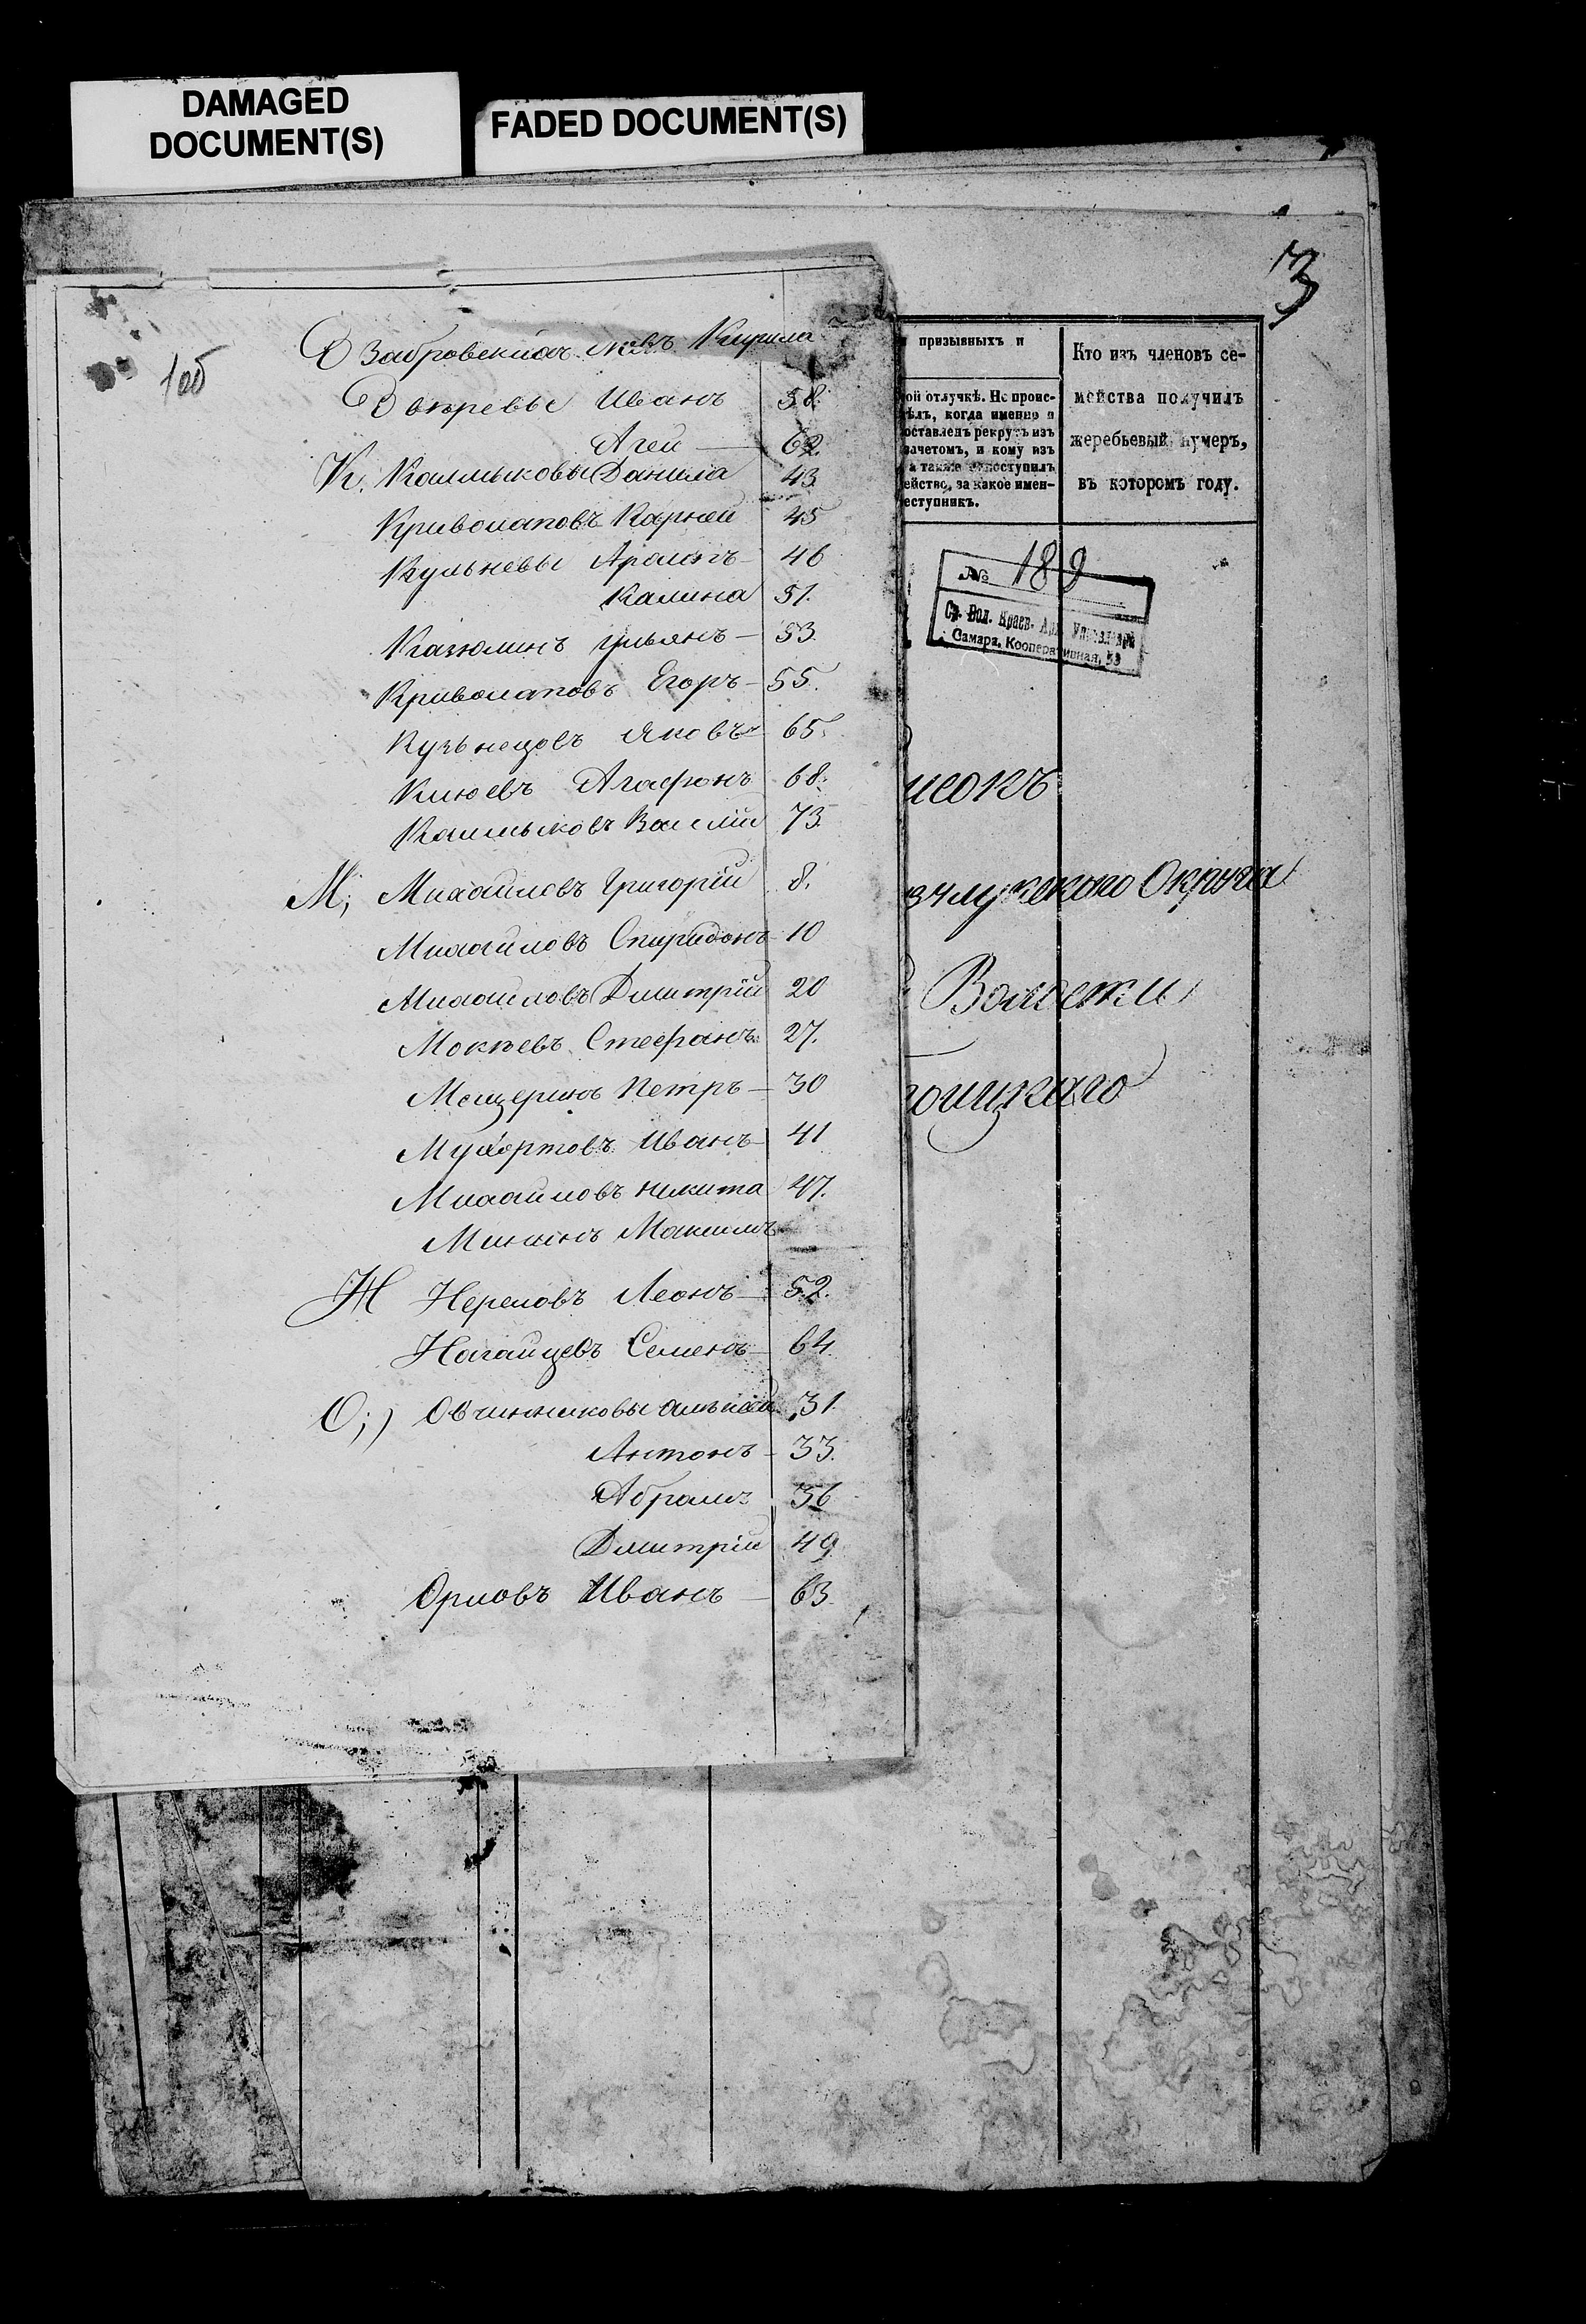 DAMAGED
DOCUMENT(S)
FADED DOCUMENT(S)
3
Кирила
Иванъ 58.
Агей — 62.
К. Калмыковы Данила 43
Криволаповъ Карней 45
Кульневы 46
Калина 51.
Ульянъ — 53.
Криволаповъ Егоръ — 55.
Кузьнецовъ Яковъ 65.
Клюевъ Агафонъ 68.
Калмыковъ 73.
М; Михайловъ Григорій 8.
Михайловъ Спиридонъ 10
Михайловъ Дмитрій 20
Мокѣевъ Стефанъ 27.
Мещеринъ Петръ — 30
Мухортовъ Иванъ 41
Михайловъ Никита 47.
Мининъ Максимъ
Н Леонъ — 52.
Нагайцевъ Семенъ 64.
О;) Овчинниковы 31.
Антонъ — 33.
Абрамъ 36
Дмитрій 49
Орловъ Иванъ — 63.
призывныхъ и
ой отлучкѣ. Не проис-
ѣлъ, когда именно и
оставленъ рекрутъ изъ
зачетомъ, и кому изъ
а также поступилъ
ейство, за какое имен-
еступникъ.
Кто изъ членовъ се-
мейства получилъ
жеребьевый нумеръ,
въ которомъ году.
№ 189
Ср. Вол. Краев. Арх. Управление
Самара, Кооперативная, 53
исокъ
Округа
Волости
оицкаго